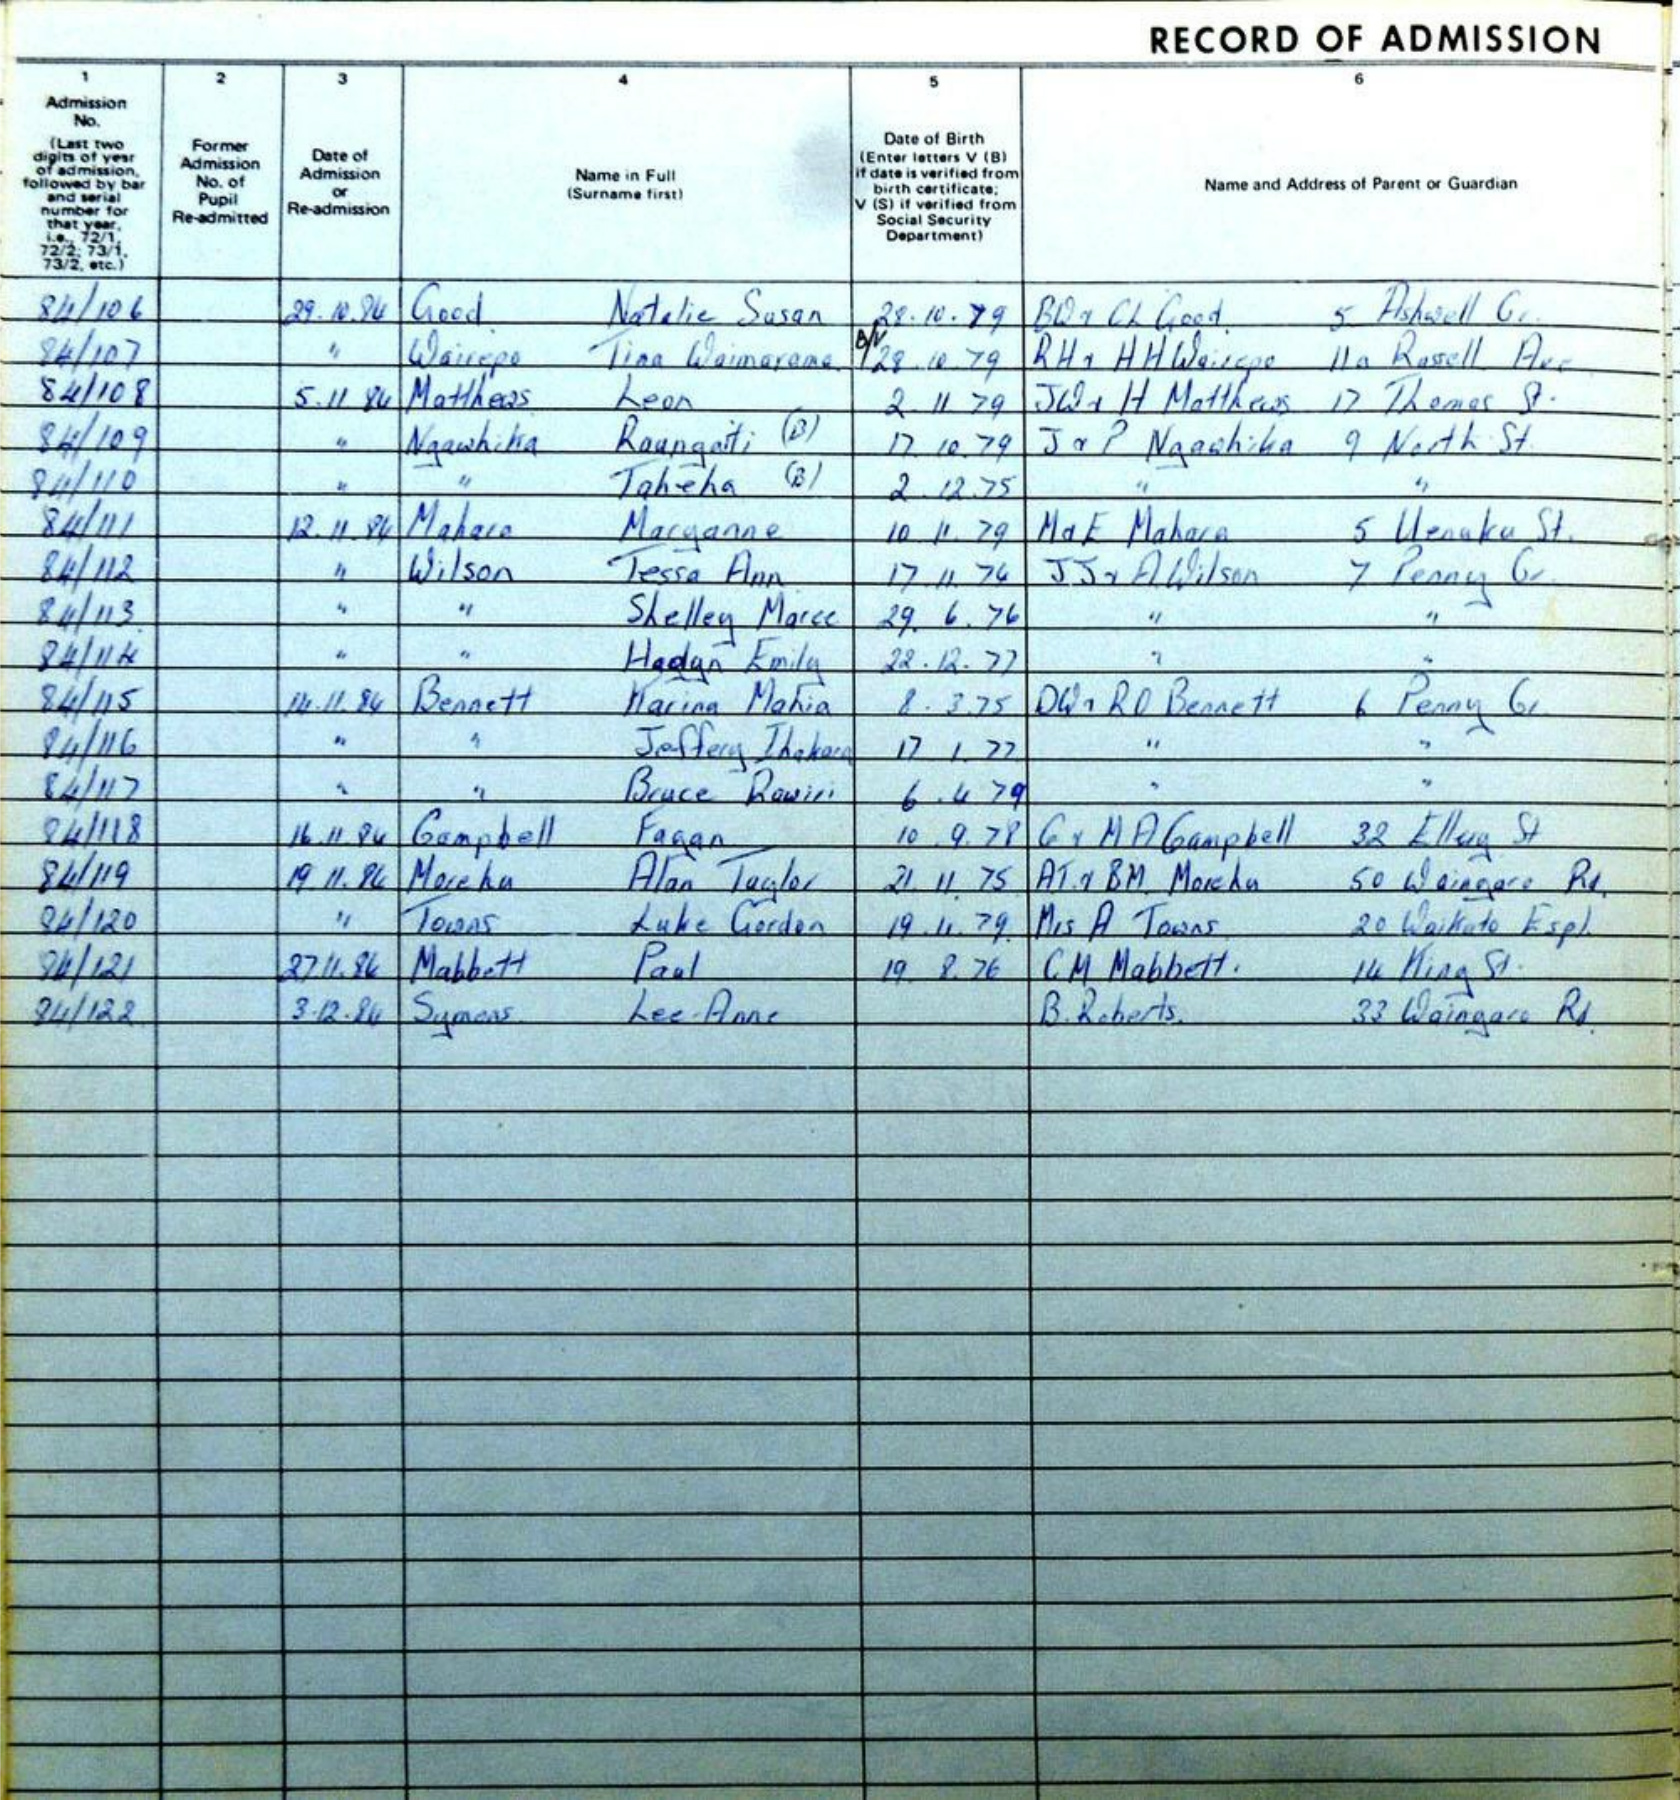 RECORD OF ADMISSION
1 2 3 4 5 6
Admission No. (Last two digits of year of admission, followed by bar and serial number for that year, i.e., 72/1, 72/2; 73/1, 73/2, etc.)
Former Admission No. of Pupil Re-admitted
Date of Admission or Re-admission
Name in Full (Surname first)
Date of Birth (Enter letters V (B) if date is verified from birth certificate; V (S) if verified from Social Security Department)
Name and Address of Parent or Guardian
84/106 29.10.84 Good Natalie Susan 28.10.79 BD & CL Good. 5 Ashwell Cr.
84/107 " Wairepo Tina Waimarama 28.10.79 RH & HH Wairepo 11a Russell Ave
84/108 5.11.84 Matthews Leon 2.11.79 JW & H Matthews 17 Thomas St.
84/109 " Ngawhika Raungaiti (B) 17.10.79 J & P Ngawhika 9 North St.
84/110 " " (B) 2.12.75 " "
84/111 12.11.84 Mahara Maryanne 10.11.79 M & E Mahara 5 Uenuku St.
84/112 " Wilson Tessa Ann 17.11.74 JJ & A Wilson 7 Penny Cr.
84/113 " " Shelley Maree 29.6.76 " "
84/114 " " Emily 22.12.77 " "
84/115 14.11.84 Bennett Karina Mahia 8.3.75 DW & RD Bennett 6 Penny Cr.
84/116 " " Jeffery Ihakara 17.1.77 " "
84/117 " " Bruce Rawiri 6.4.79 " "
84/118 16.11.84 Campbell Fagan 10.9.78 G & MA Campbell 32 Ellery St
84/119 19.11.84 Morehu Alan Taylor 21.11.75 AT & BM. Morehu 50 Waingaro Rd.
84/120 " Towns Luke Gordon 19.11.79. Mrs A Towns 20 Waikato Espl.
84/121 27.11.84 Mabbett Paul 19.8.76 CM Mabbett. 14 King St.
84/122 3.12.84 Symons Lee-Anne B. Roberts. 33 Waingaro Rd.